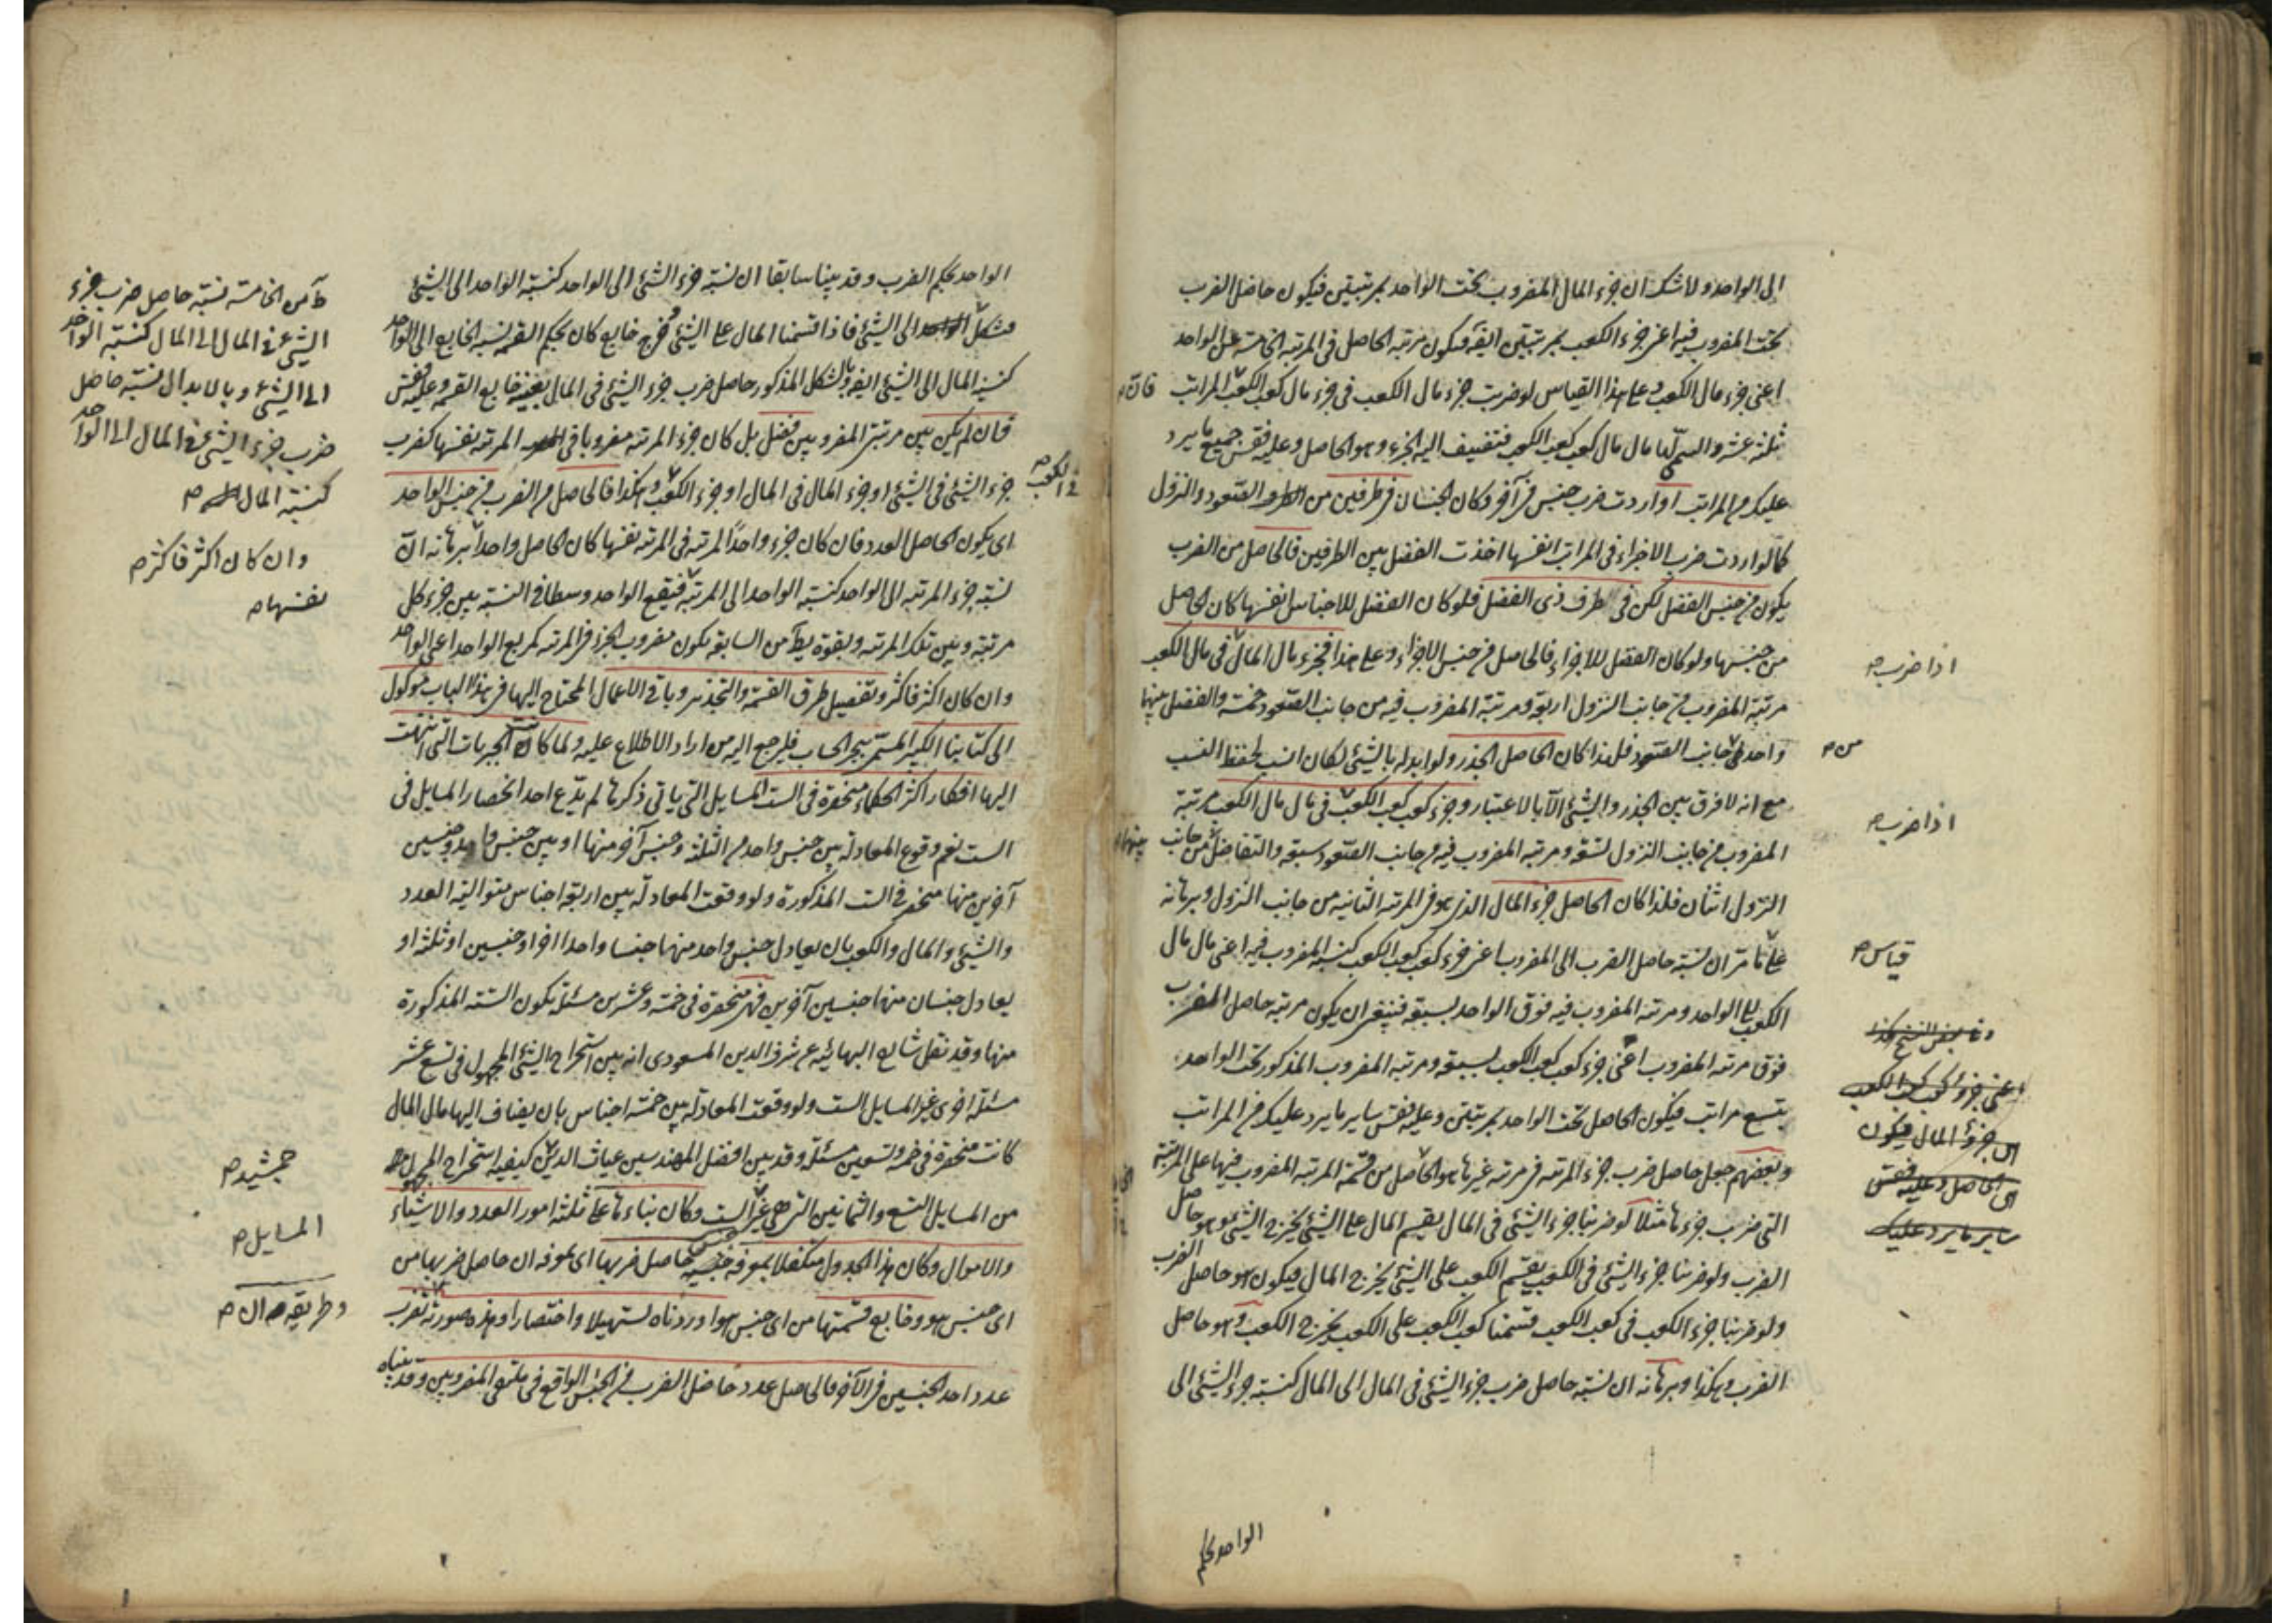 الى الواحد ولا شك ان جزء المال المضروب تحت الواحد بمرتبتين فيكون حاصل الضرب
تحت المضروب فيه اعنى جزء الكعب بمرتبتين ايضا فيكون مرتبة الحاصل فى المرتبة الخامسة عن الواحد
اعنى جزء مال الكعب وعلى هذا القياس لو ضربت جزء مال الكعب فى جزء مال كعب الكعب المراتب
ثلثة عشر والسمى لها مال مال كعب كعب الكعب فتضيف اليه الجزء وهو الحاصل وعليه فقس جميع ما يرد
عليك من المراتب او اردت ضرب جنس فى آخر وكان الجنسان فى طرفين من الصعود والنزول
كما لو اردت ضرب الاجزاء فى المراتب انفسها اخذت الفضل بين الطرفين فالحاصل من الضرب
يكون من جنس الفضل لكن فى طرف ذى الفضل فلو كان الفضل للاجناس انفسها كان الحاصل
من جنسها ولو كان الفضل للاجزاء فالحاصل من جنس الاجزاء وعلى هذا فجزء مال المال فى مال الكعب
مرتبة المضروب من جانب النزول اربعة ومرتبة المضروب فيه من جانب الصعود خمسة والفضل بينها
واحد فى جانب الصعود فلهذا كان الحاصل الجذر ولو ابدله بالشئ لكان انسب لحفظ النسب
مع انه لا فرق بين الجذر والشئ الا بالاعتبار وجزء كعب كعب الكعب فى مال مال الكعب مرتبة
المضروب من جانب النزول تسعة ومرتبة المضروب فيه من جانب الصعود سبعة والتفاضل من جانب
النزول اثنان فلذا كان الحاصل جزء المال الذى هو فى المرتبة الثانية من جانب النزول وبرهانه
على ما مر ان نسبة حاصل الضرب الى المضروب اعنى جزء كعب كعب الكعب كنسبة المضروب فيه اعنى مال مال
الكعب الى الواحد ومرتبة المضروب فيه فوق الواحد بسبعة فينبغى ان يكون مرتبة حاصل الضرب
فوق مرتبة المضروب اعنى جزء كعب كعب الكعب بسبعة ومرتبة المضروب المذكور تحت الواحد
بتسع مراتب فيكون الحاصل تحت الواحد بمرتبتين وعليه فقس ساير ما يرد عليك من المراتب
وبعضهم جعل حاصل ضرب جزء المرتبة فى مرتبة غيرها هو الحاصل من قسمة المرتبة المضروب فيها على المرتبة
التى ضرب جزءها مثلا لو ضربنا جزء الشئ فى المال يقسم المال على الشئ يخرج الشئ وهو حاصل
الضرب ولو ضربنا جزء الشئ فى الكعب يقسم الكعب على الشئ يخرج المال فيكون هو حاصل الضرب
ولو ضربنا جزء الكعب فى كعب الكعب قسمنا كعب الكعب على الكعب يخرج الكعب وهو حاصل
الضرب وهكذا وبرهانه ان نسبة حاصل ضرب جزء الشئ فى المال الى المال كنسبة جزء الشئ الى
الواحد بحكم
اذا ضرب
من
اذا ضرب
قياس
اى جزؤ المال فيكون
الواحد بحكم الضرب وقد بينا سابقا ان نسبة جزء الشئ الى الواحد كنسبة الواحد الى الشئ
الى الشئ فاذا قسمنا المال على الشئ فخرج خارج كان بحكم القسمة نسبة الخارج الى الواحد
كنسبة المال الى الشئ ايضا وبالشكل المذكور حاصل ضرب جزء الشئ فى المال بعينه خارج القسمة وعليه فقس
فان لم يكن بين مرتبتى المضروبين فضل بل كان جزء المرتبة مضروبا فى المرتبة نفسها كضرب
جزء الشئ فى الشئ او جزء المال فى المال او جزء الكعب وهكذا فالحاصل من الضرب من جنس الواحد
اى يكون الحاصل العدد فان كان جزء واحدا لمرتبة فى المرتبة نفسها كان الحاصل واحدا برهانه ان
نسبة جزء المرتبة الى الواحد كنسبة الواحد الى المرتبة فيقع الواحد وسطا فى النسبة بين جزء كل
مرتبة وبين تلك المرتبة وبقوة يط من السابعة يكون مضروب الجزء فى المرتبة كمربع الواحد اعنى الواحد
وان كان اكثر فاكثر وتفصيل طرق القسمة والتجذير وباقى الاعمال المحتاج اليها فى هذا الباب موكول
الى كتابنا الكبير المسمى ببحر الحساب فليرجع اليه من اراد الاطلاع عليه ولما كانت الجبريات التى انتهت
اليها افكار اكثر الحكماء منحصرة فى الست المسايل التى ياتى ذكرها لم يدع احد انحصار المسايل فى
الست نعم وقوع المعادلة بين جنس واحد من الثلثة وجنس آخر منها او بين جنس واحد وجنسين
آخرين منها منحصر فى الست المذكورة ولو وقعت المعادلة بين اربعة اجناس متوالية العدد
والشئ والمال والكعب بان يعادل جنس واحد منها جنسا واحدا اخر او جنسين او ثلثة او
يعادل جنسان منها جنسين آخرين فهى منحصرة فى خمسة وعشرين مسئلة يكون الستة المذكورة
منها وقد نقل شارح البهائية عن شرف الدين المسعودى انه بين استخراج الشئ المجهول فى تسع عشر
مسئلة اخرى غير المسايل الست ولو وقعت المعادلة بين خمسة اجناس بان يضاف اليها مال المال
كانت منحصرة فى خمسة وتسعين مسئلة وقد بين افضل المهندسين غياث الدين كيفية استخراج المجهول
من المسايل التسع والثمانين التى هى غير الست وكان بناءها على ثلثة امور العدد والاشياء
والاموال وكان هذا الجدول متكفلا بمعرفة جنسية حاصل ضربها اى معرفة ان حاصل ضربها من
اى جنس هو وخارج قسمتها من اى جنس هو اوردناه تسهيلا واختصارا وهذه صورته تضرب
عدد احد الجنسين فى الآخر فالحاصل عدد حاصل الضرب من الجنس الواقع فى ملتقى المضروبين وقد بيناه
فى الكعب
من الخامسة نسبة حاصل ضرب جزء
الشئ فى المال الى المال كنسبة الواحد
الى الشئ وبالابدال نسبة حاصل
ضرب جزء الشئ فى المال الى الواحد
كنسبة المال
وان كان اكثر فاكثر
نفسها
جمشيد
المسايل
وطريقه ان